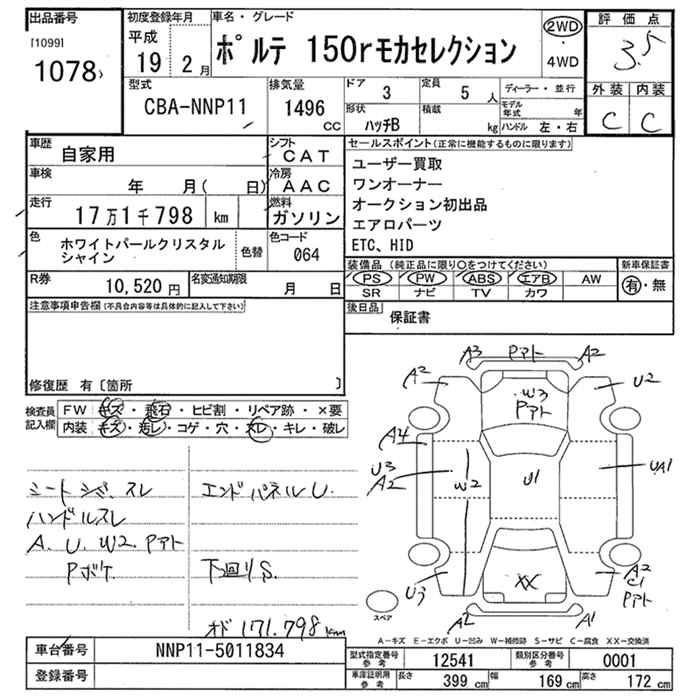 出品番号 初度登録年月 車名・グレード 2WD・4WD 評価点
[1099] 平成
1078 19 2月 ポルテ 150rモカセレクション 3.5
型式 排気量 ドア 3 定員 5人 ディーラー・並行 外装 内装
CBA-NNP11 1496cc 形状 ハッチB 積載 kg モデル年式 年 C C
ハンドル 左・右
車歴 自家用 シフト CAT セールスポイント(正常に機能するものに限ります)
車検 年 月( 日) 冷房 AAC ユーザー買取
ワンオーナー
走行 17万1千798 km 燃料 ガソリン オークション初出品
エアロパーツ
色 ホワイトパールクリスタルシャイン 色替 色コード 064 ETC、HID
装備品(純正品に限り○をつけてください) 新車保証書
R券 10,520円 名変通知期限 月 日 PS PW ABS エアB AW 有・無
SR ナビ TV カワ
注意事項申告欄(不具合内容等は具体的に記入して下さい) 後日品 保証書
修復歴 有〔箇所 〕
検査員記入欄 FW キズ・飛石・ヒビ割・リペア跡・×要
内装 キズ・汚レ・コゲ・穴・スレ・キレ・破レ
A3 Pアト A2
A2 U2
W3
Pアト
A4
U3 A2 W2 U1 UA1
シートシミ、スレ エンドパネルU.
ハンドルスレ
A. U. W2. Pアト
Pボケ. 下回りS.
U3 XX A2 C1 Pアト
A2 A1
スペア
オド 171.798km
A-キズ E-エクボ U-凹み W-補修跡 S-サビ C-腐食 XX-交換済
車台番号 NNP11-5011834 型式指定番号 参考 12541 類別区分番号 参考 0001
登録番号 車庫証明用 参考 長さ 399cm 幅 169cm 高さ 172cm